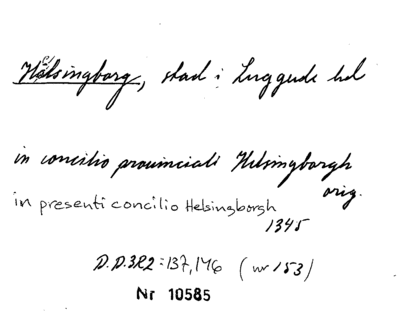 Helsingborg, stad i Luggude hd
in concilio prouinciali Helsingborgh
orig.
in presenti concilio Helsingborgh
1345
D.D.3R2:137,146 (nr 153)
Nr 10585